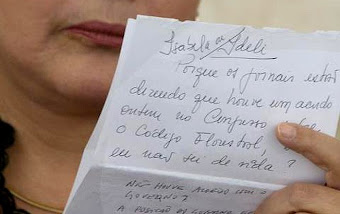 Isabela ou Ideli
Porque os jornais estão
dizendo que houve um acordo
ontem no Congresso sobre
o Código Florestal,
eu não sei de nada?
NÃO HOUVE ACORDO COM O
GOVERNO?
A POSIÇÃO DO GOVERNO